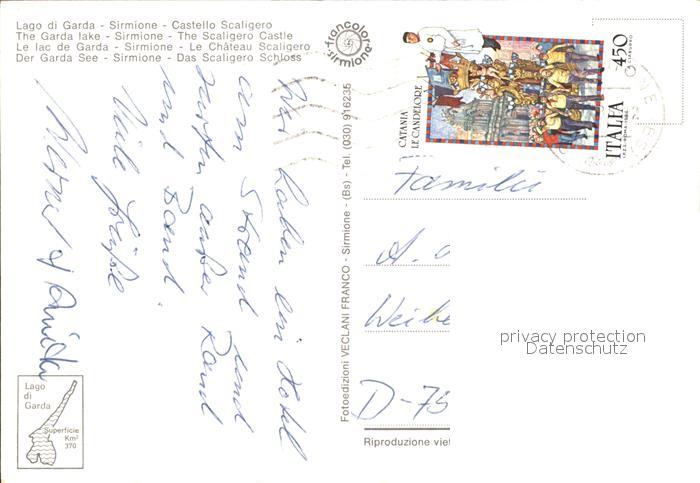 Lago di Garda - Sirmione - Castello Scaligero
The Garda lake - Sirmione - The Scaligero Castle
Le lac de Garda - Sirmione - Le Château Scaligero
Der Garda See - Sirmione - Das Scaligero Schloss
francolor
sirmione
Wir haben ein Hotel
am Strand und
außer Rand
und Band.
Viele Grüße
Lago
di
Garda
Superficie
Km²
370
Fotoedizioni VECLANI FRANCO - Sirmione - (Bs) - Tel. (030) 916235
CATANIA
LE CANDELORE
ITALIA 450
Familie
A.
D-75
privacy protection
Datenschutz
Riproduzione viet